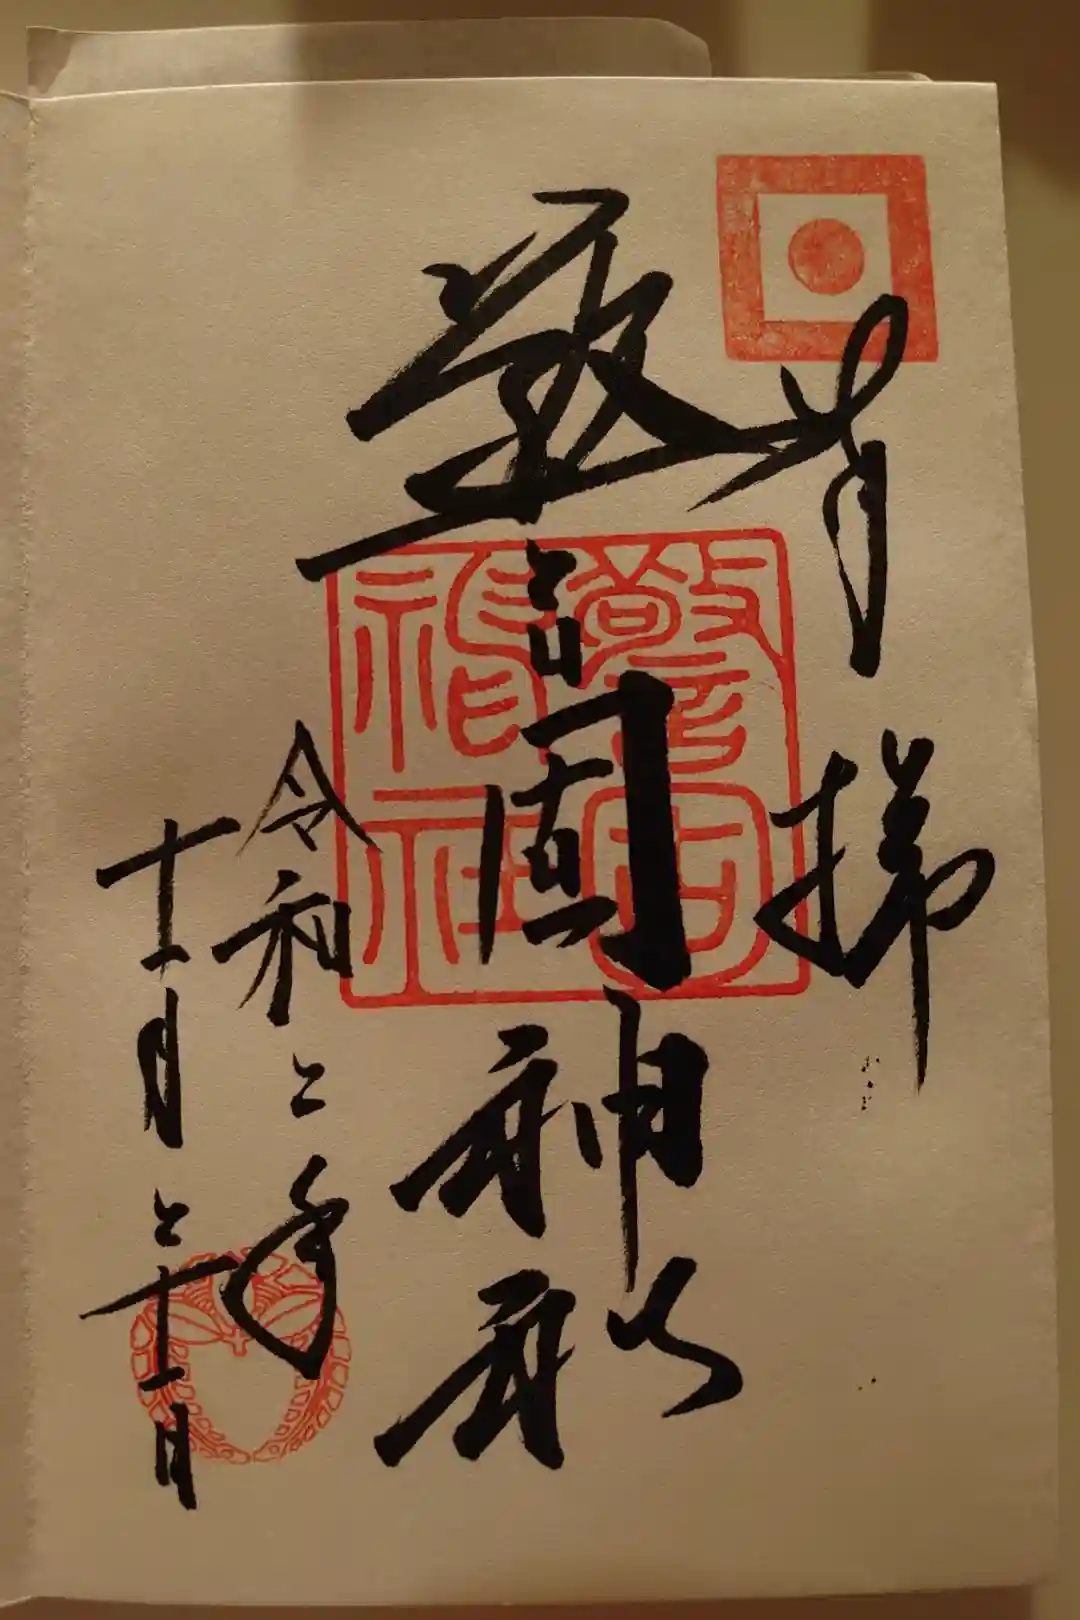 奉拝
警固神社
令和二年
十一月二十一日
警固
神社